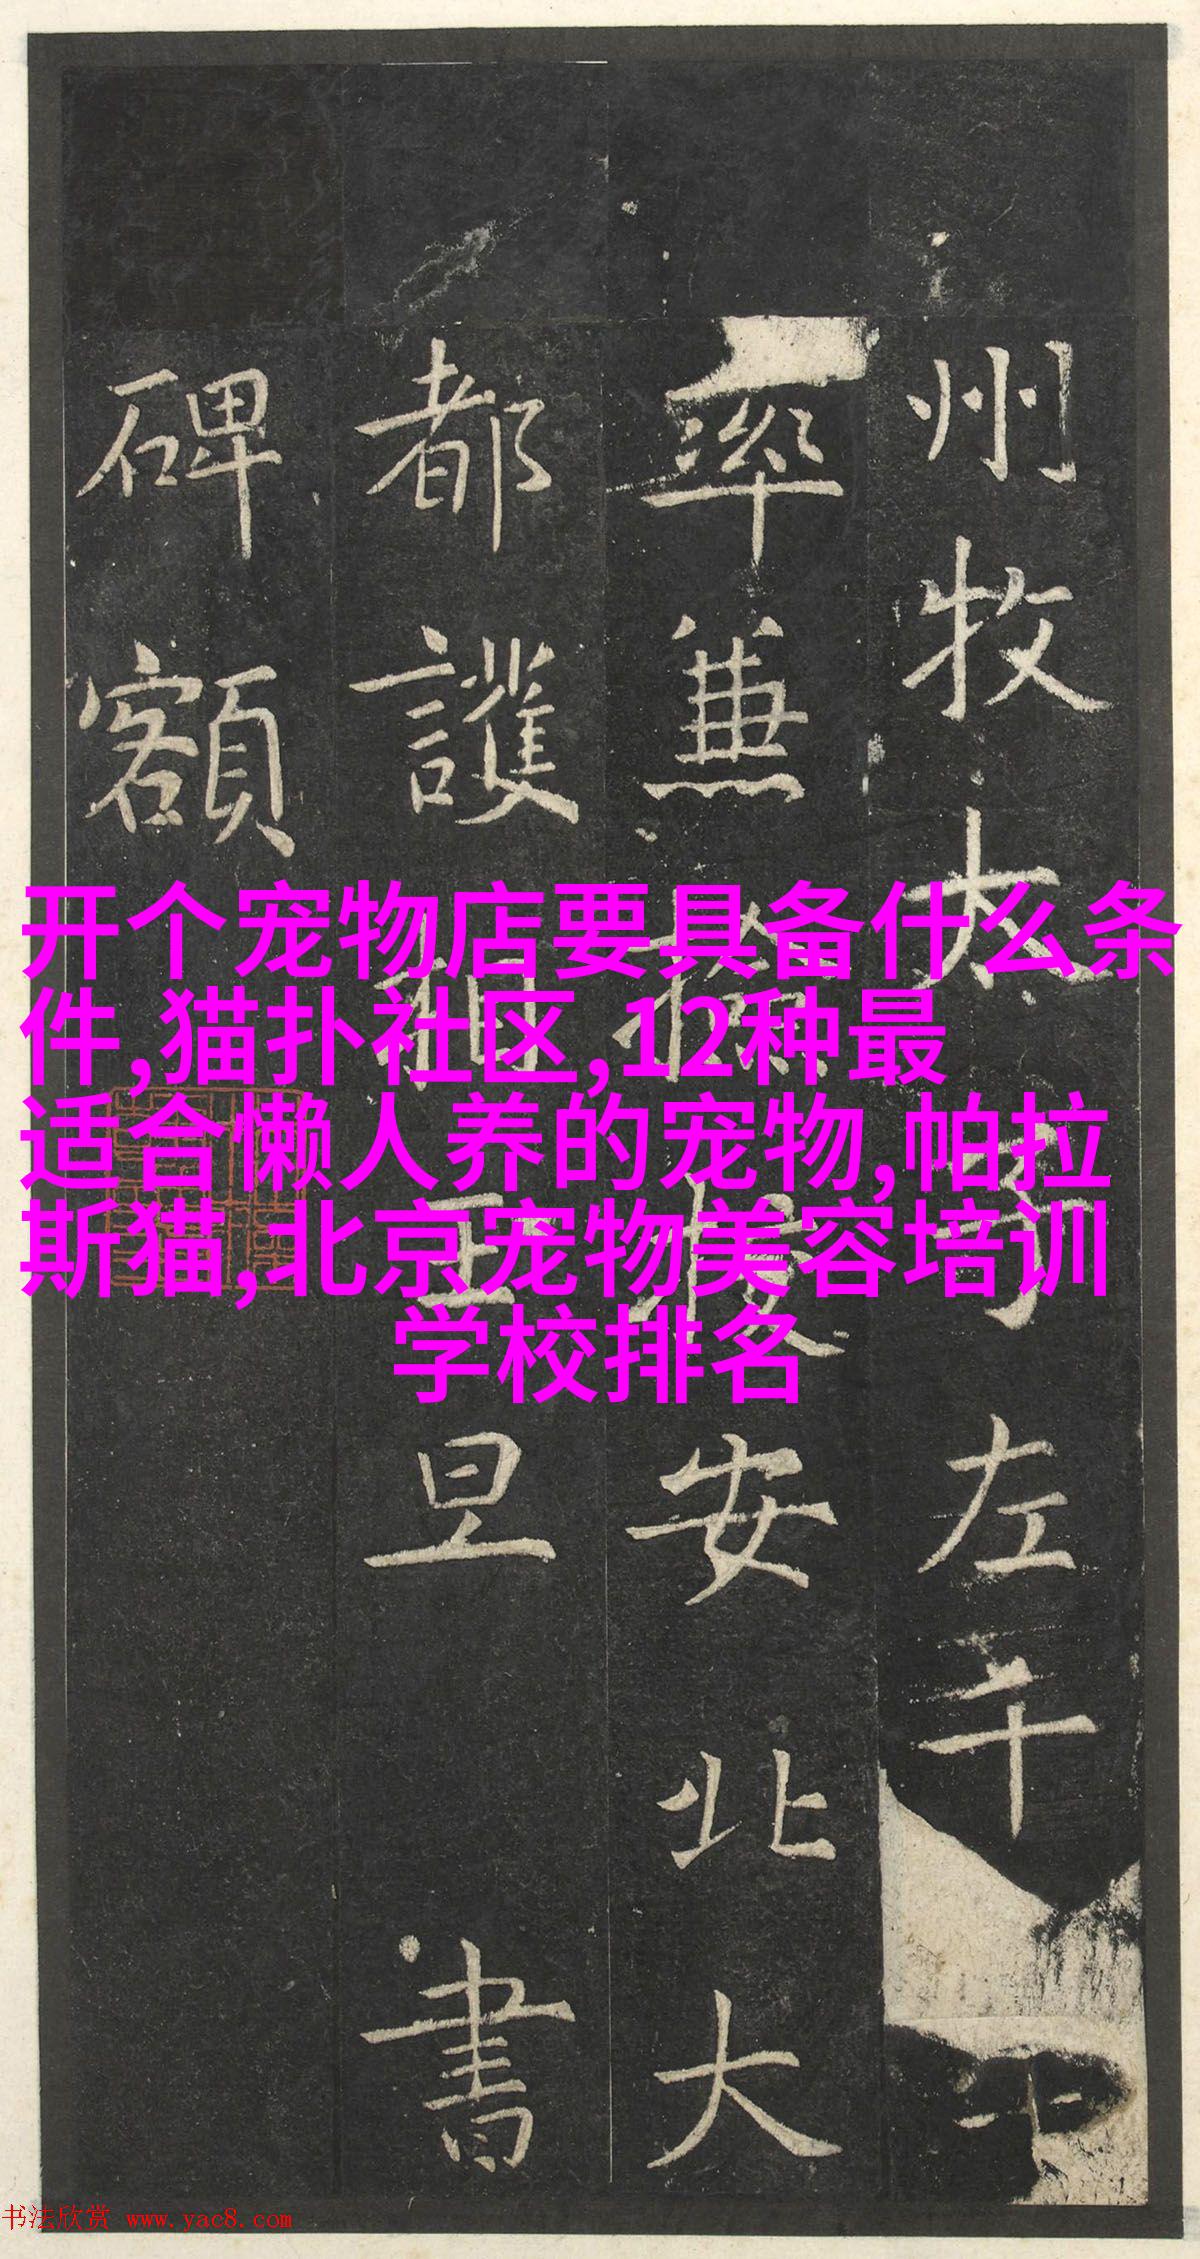 州牧太子左千
率兼撿挍安北大
都護相王旦書
碑額
开个宠物店要具备什么条
件,猫扑社区,12种最
适合懒人养的宠物,帕拉
斯猫,北京宠物美容培训
学校排名
书法欣赏 www.yac8.com